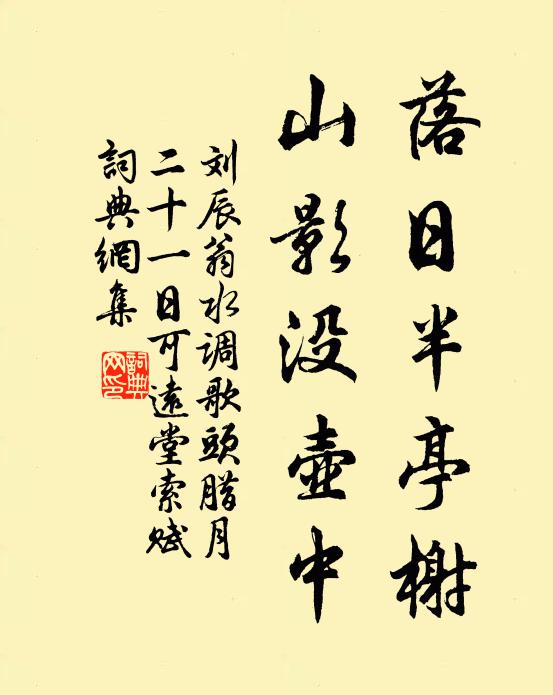 落日半亭榭
山影没壺中
刘辰翁水调歌頭腊月
二十一日可遠堂索赋
詞典網集
詞典網印